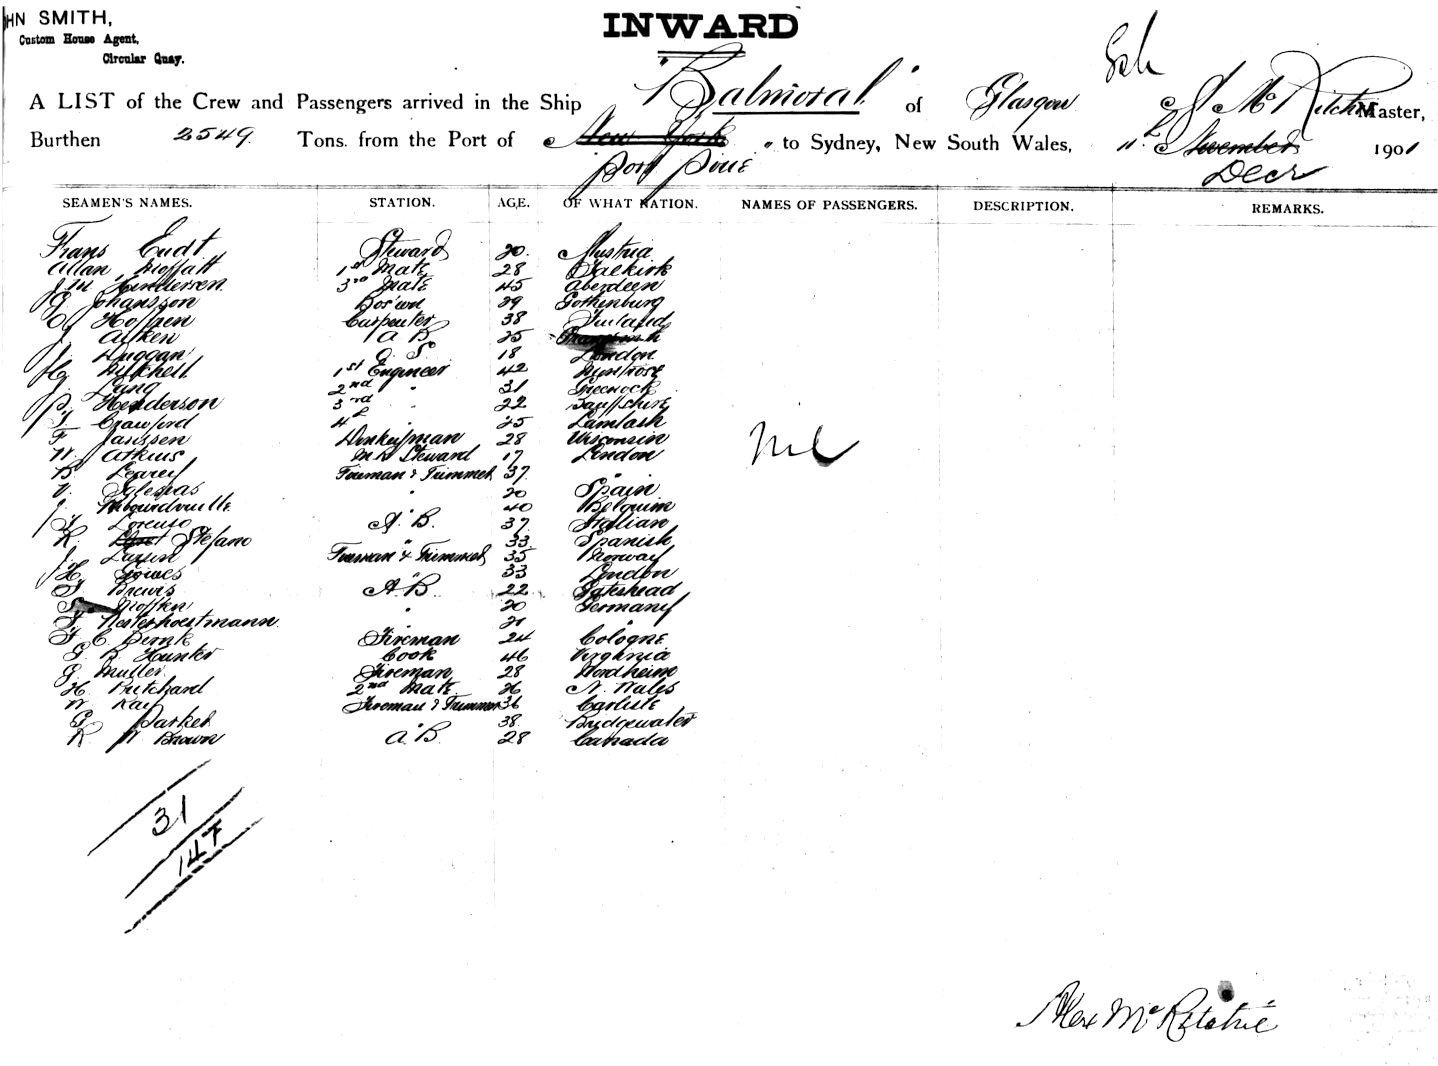 HN SMITH,
Custom House Agent,
Circular Quay.
INWARD
A LIST of the Crew and Passengers arrived in the Ship "Balmoral" of Glasgow McRitchie Master,
Burthen 2549 Tons. from the Port of New York to Sydney, New South Wales, November 1901
Port Pirie
Decr
SEAMEN'S NAMES. STATION. AGE. OF WHAT NATION. NAMES OF PASSENGERS. DESCRIPTION. REMARKS.
Frans Endt Steward 20 Austria
Allan Moffatt 1st Mate 28 Falkirk
Henderson 3rd Mate 45 Aberdeen
G Johansson Bos'un 29 Gothenburg
Carpenter 38 Finland
J Aitken A B 25
J Duggan O. S. 18 London
Mitchell 1st Engineer 42 Montrose
J. Lang 2nd " 31 Greenock
P Henderson 3rd " 22 Banffshire
T Crawford 4 " 25 Lamlash
F Janssen Donkeyman 28 Wisconsin
W. Atkins M R Steward 17 London
Nil
B Learey Fireman & Trimmer 37 "
V. Iglesias " 20 Spain
J. 40 Belguim
F Lorenso A. B. 37 Italian
R. Stefano " 33 Spanish
J. Larsen Fireman & Trimmer 35 Norway
H. Gowes " 33 London
T Brewis A. B. 22 Gateshead
20 Germany
F Kesterhoestmann " 21 "
F C Bernk Fireman 24 Cologne
G B Hunter Cook 46 Virghnia
G. Muller Fireman 28 Nordheim
H Pritchard 2nd Mate 26 N. Wales
W Kay Fireman & Trimmer 36 Carlisle
G Parker " 38 Bridgewater
R W. Brown A. B. 28 Canada
31
147
Alex McRitchie